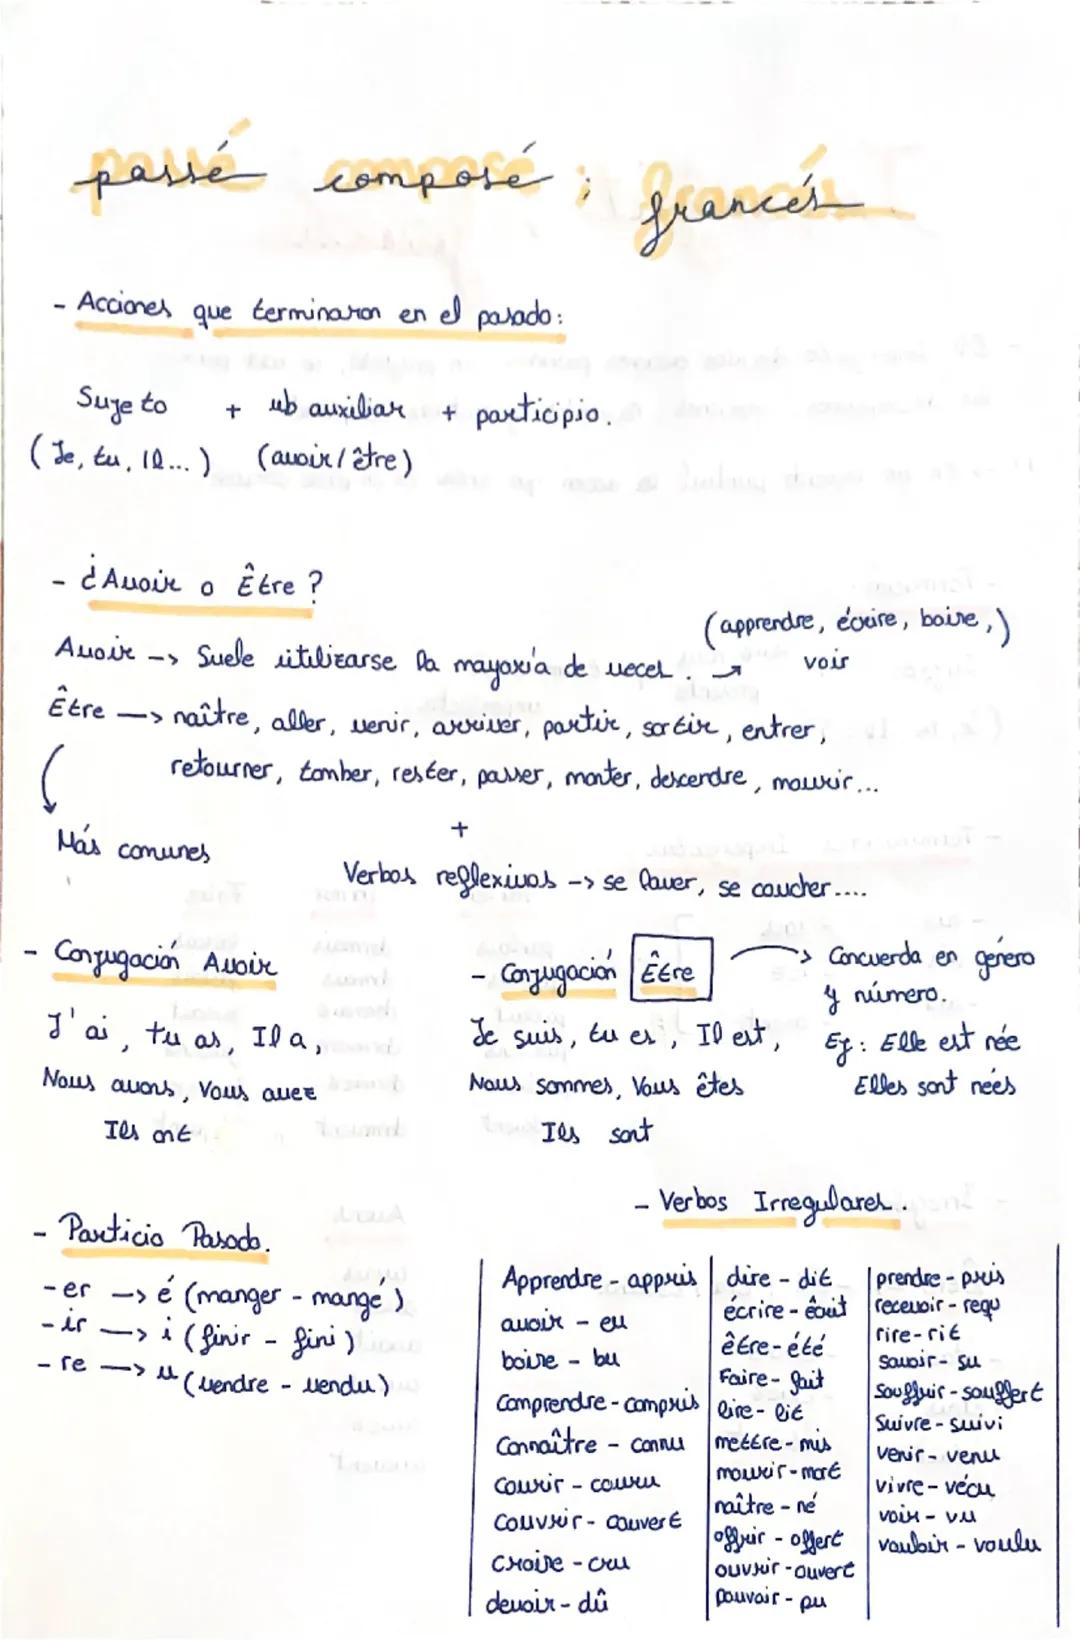 passé composé ; francés
- Acciones que terminaron en el pasado:
Sujeto + vb auxiliar + participio.
(Je, tu, Il...) (avoir/être)
- ¿Avoir o Être?
(apprendre, écrire, boire,)
Avoir -> Suele utilizarse la mayoría de veces. -> voir
Être -> naître, aller, venir, arriver, partir, sortir, entrer,
retourner, tomber, rester, passer, monter, descendre, mourir...
Más comunes
+
Verbos reflexivos -> se laver, se coucher....
- Conjugación Avoir
J'ai, tu as, Il a,
Nous avons, Vous avez
Ils ont
- Conjugación Être -> Concuerda en género
y número.
Je suis, tu es, Il est,
Nous sommes, Vous êtes
Ils sont
Ej: Elle est née
Elles sont nées
- Particio Pasado.
-er -> é (manger - mangé)
-ir -> i (finir - fini)
-re -> u (vendre - vendu)
- Verbos Irregulares.
Apprendre - appris
avoir - eu
boire - bu
Comprendre - compris
Connaître - connu
Courir - couru
Couvrir - couvert
Croire - cru
devoir - dû
dire - dit
écrire - écrit
être - été
Faire - fait
lire - lit
mettre - mis
mourir - mort
naître - né
offrir - offert
ouvrir - ouvert
Pouvoir - pu
prendre - pris
recevoir - reçu
rire - rit
savoir - su
Souffrir - souffert
Suivre - suivi
venir - venu
vivre - vécu
voir - vu
vouloir - voulu